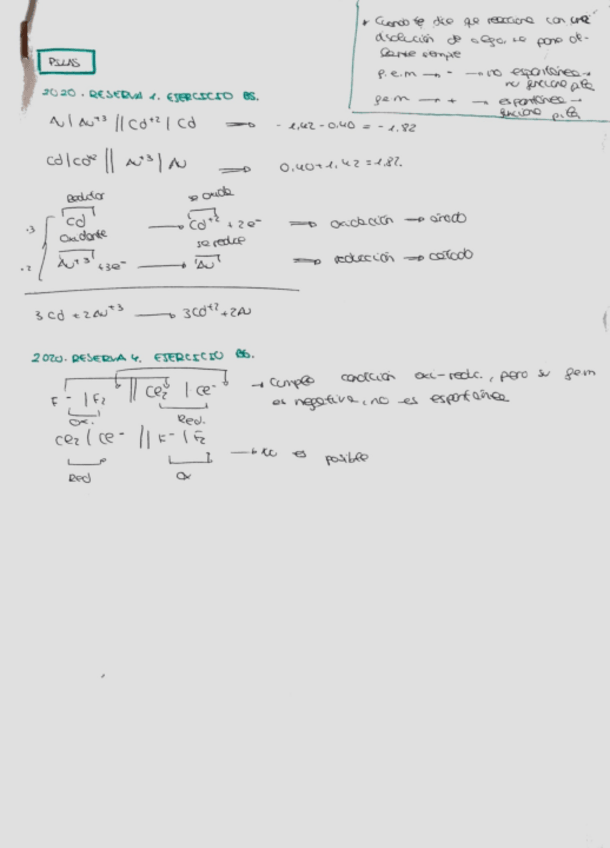 * Cuando te dice que reacciona con una
disolución de algo, se pone
siempre
f.e.m → - → no espontánea →
no funciona pila
fem → + → espontánea →
funciona pila
PILAS
2020. RESERVA 1. EJERCICIO B5.
Au | Au+3 || Cd+2 | Cd ⟹ - 1,42 - 0,40 = - 1,82
Cd | Cd+2 || Au+3 | Au ⟹ 0,40 + 1,42 = 1,82.
Reductor se oxida
·3 Cd → Cd+2 + 2e- ⟹ oxidación → ánodo
Oxidante se reduce
·2 Au+3 + 3e- → Au ⟹ reducción → cátodo
3 Cd + 2 Au+3 → 3 Cd+2 + 2 Au
2020. RESERVA 4. EJERCICIO B6.
F- | F2 || Ce2 | Ce- → Cumple condición oxi-redc., pero su fem
es negativa, no es espontánea
Ox. Red.
Ce2 | Ce- || F- | F2 → es posible
Red Ox